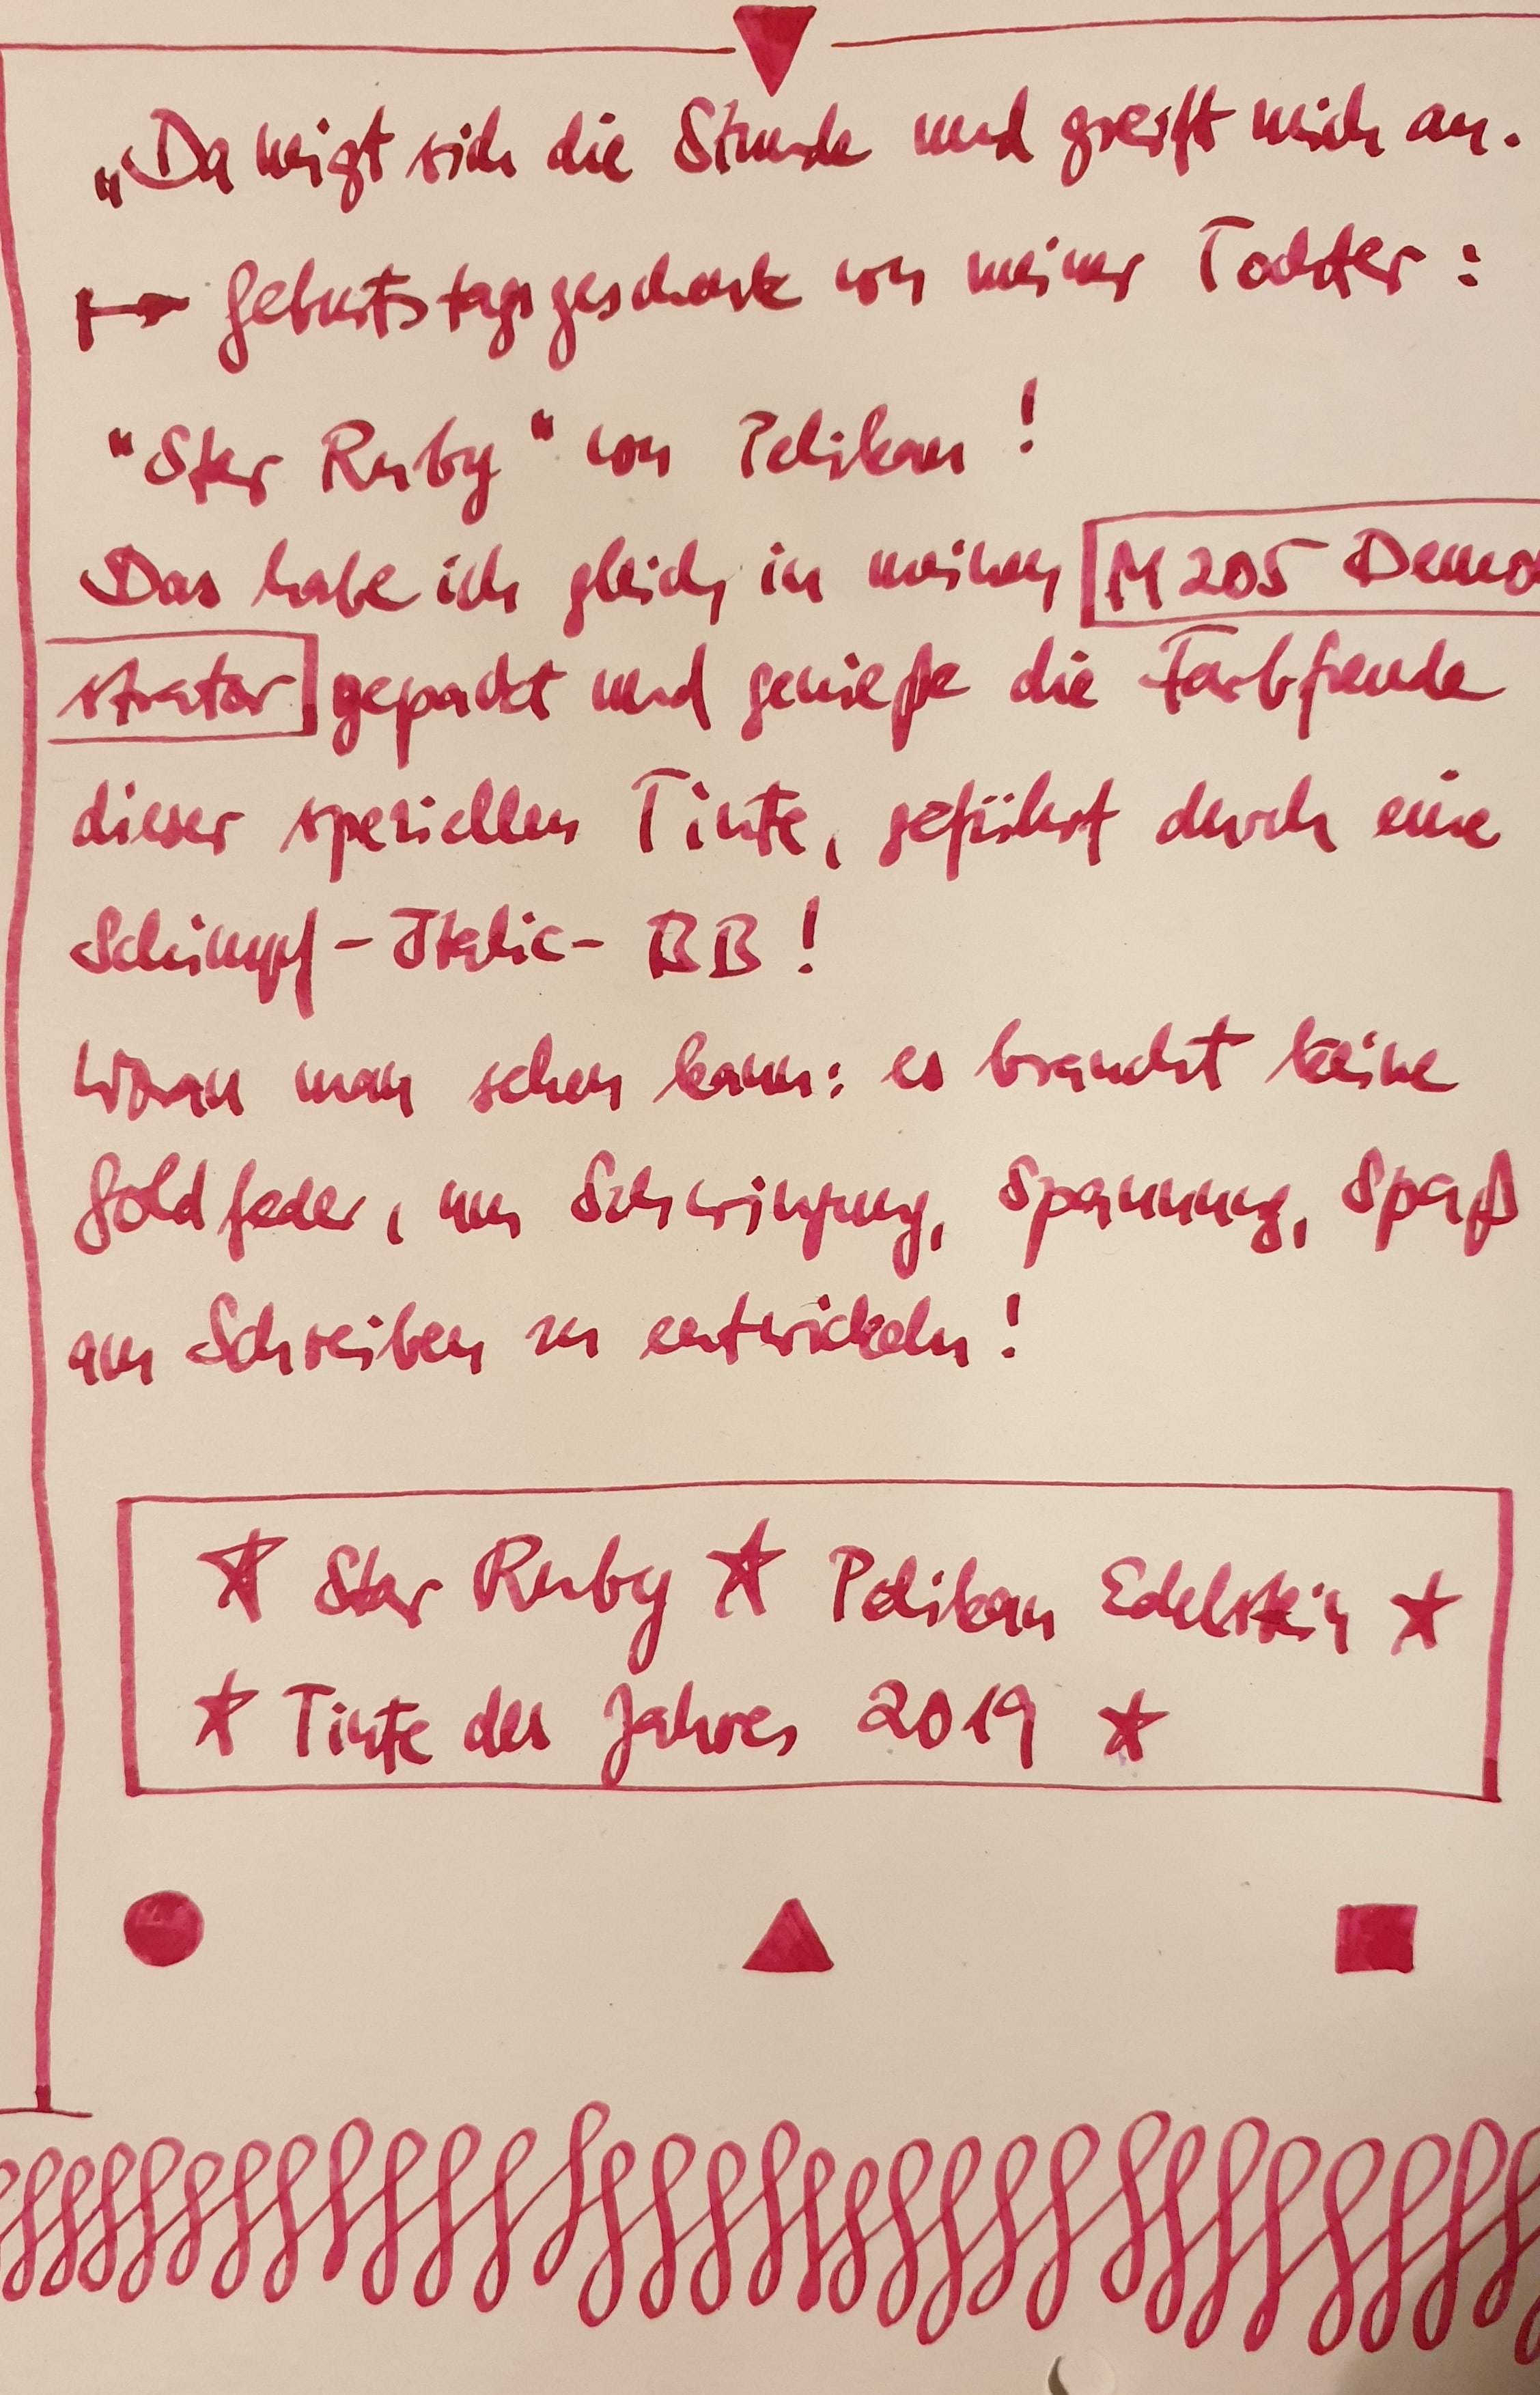 „Da neigt sich die Stunde und greift mich an.
↦ Geburtstagsgeschenk von meiner Tochter:
"Star Ruby" von Pelikan!
Das habe ich gleich in meinen M205 Demon
strator gepackt und genieße die Farbfreude
dieser speziellen Tinte, geführt durch eine
Schimpf-Italic-BB!
Woran man sehen kann: es braucht keine
Goldfeder, um Schwingung, Spannung, Spaß
am Schreiben zu entwickeln!
★ Star Ruby ★ Pelikan Edelstein ★
★ Tinte des Jahres 2019 ★